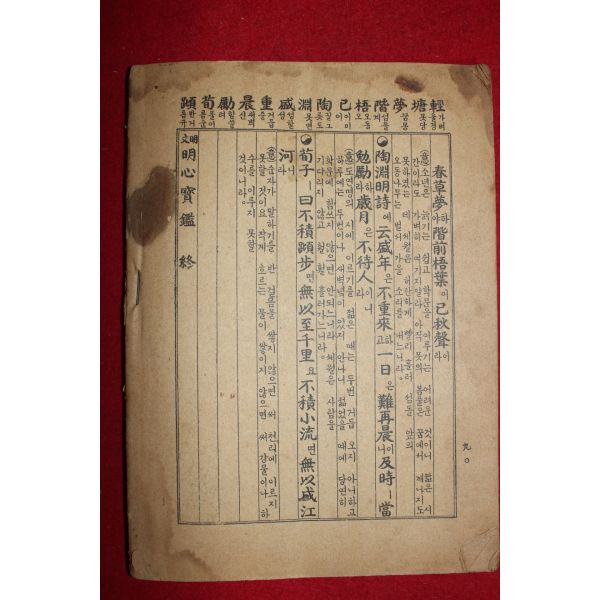 輕 塘 夢 階 梧 已 陶 淵 盛 重 晨 勵 荀 蹞
春草夢하야 階前梧葉이 已秋聲이라
(意)소년은 늙기는 쉽고 학문을 이루기는 어려운 것이니 짧은 시
간이라도 가벼히 여기지 말라 아직 못의 봄풀은 꿈에서 깨나지도
못하였는데 세월은 허란하게 빨리 흘러 섬돌 앞의
오동나무는 벌서 가을 소리를 내느니라。
陶淵明詩에 云盛年은 不重來하고 一日은 難再晨이니 及時ㅣ當
勉勵하라 歲月은 不待人이니라
(意)도연명의 시에 이르기를 젊은 때는 두번 거듭 오지 아니하고
하루에는 두번이나 새벽녘이 있지 안나니 젊었을 때에 당연히
학문에 힘쓰지 않으면 안되느니라 세월은 사람을
기다리지 않고 훨훨 흘러가느니라。
荀子ㅣ曰不積蹞步면 無以至千里요 不積小流면 無以成江
河니라
(意)순자가 말하기를 반 걸음을 쌓지 않으면 써 천리에 이르지
못할 것이요 적게 흐르는 물이 쌓이지 않으면 써 강물이나 하
수를 이루지 못할
것이니라。
明文 明心寶鑑 終
九〇